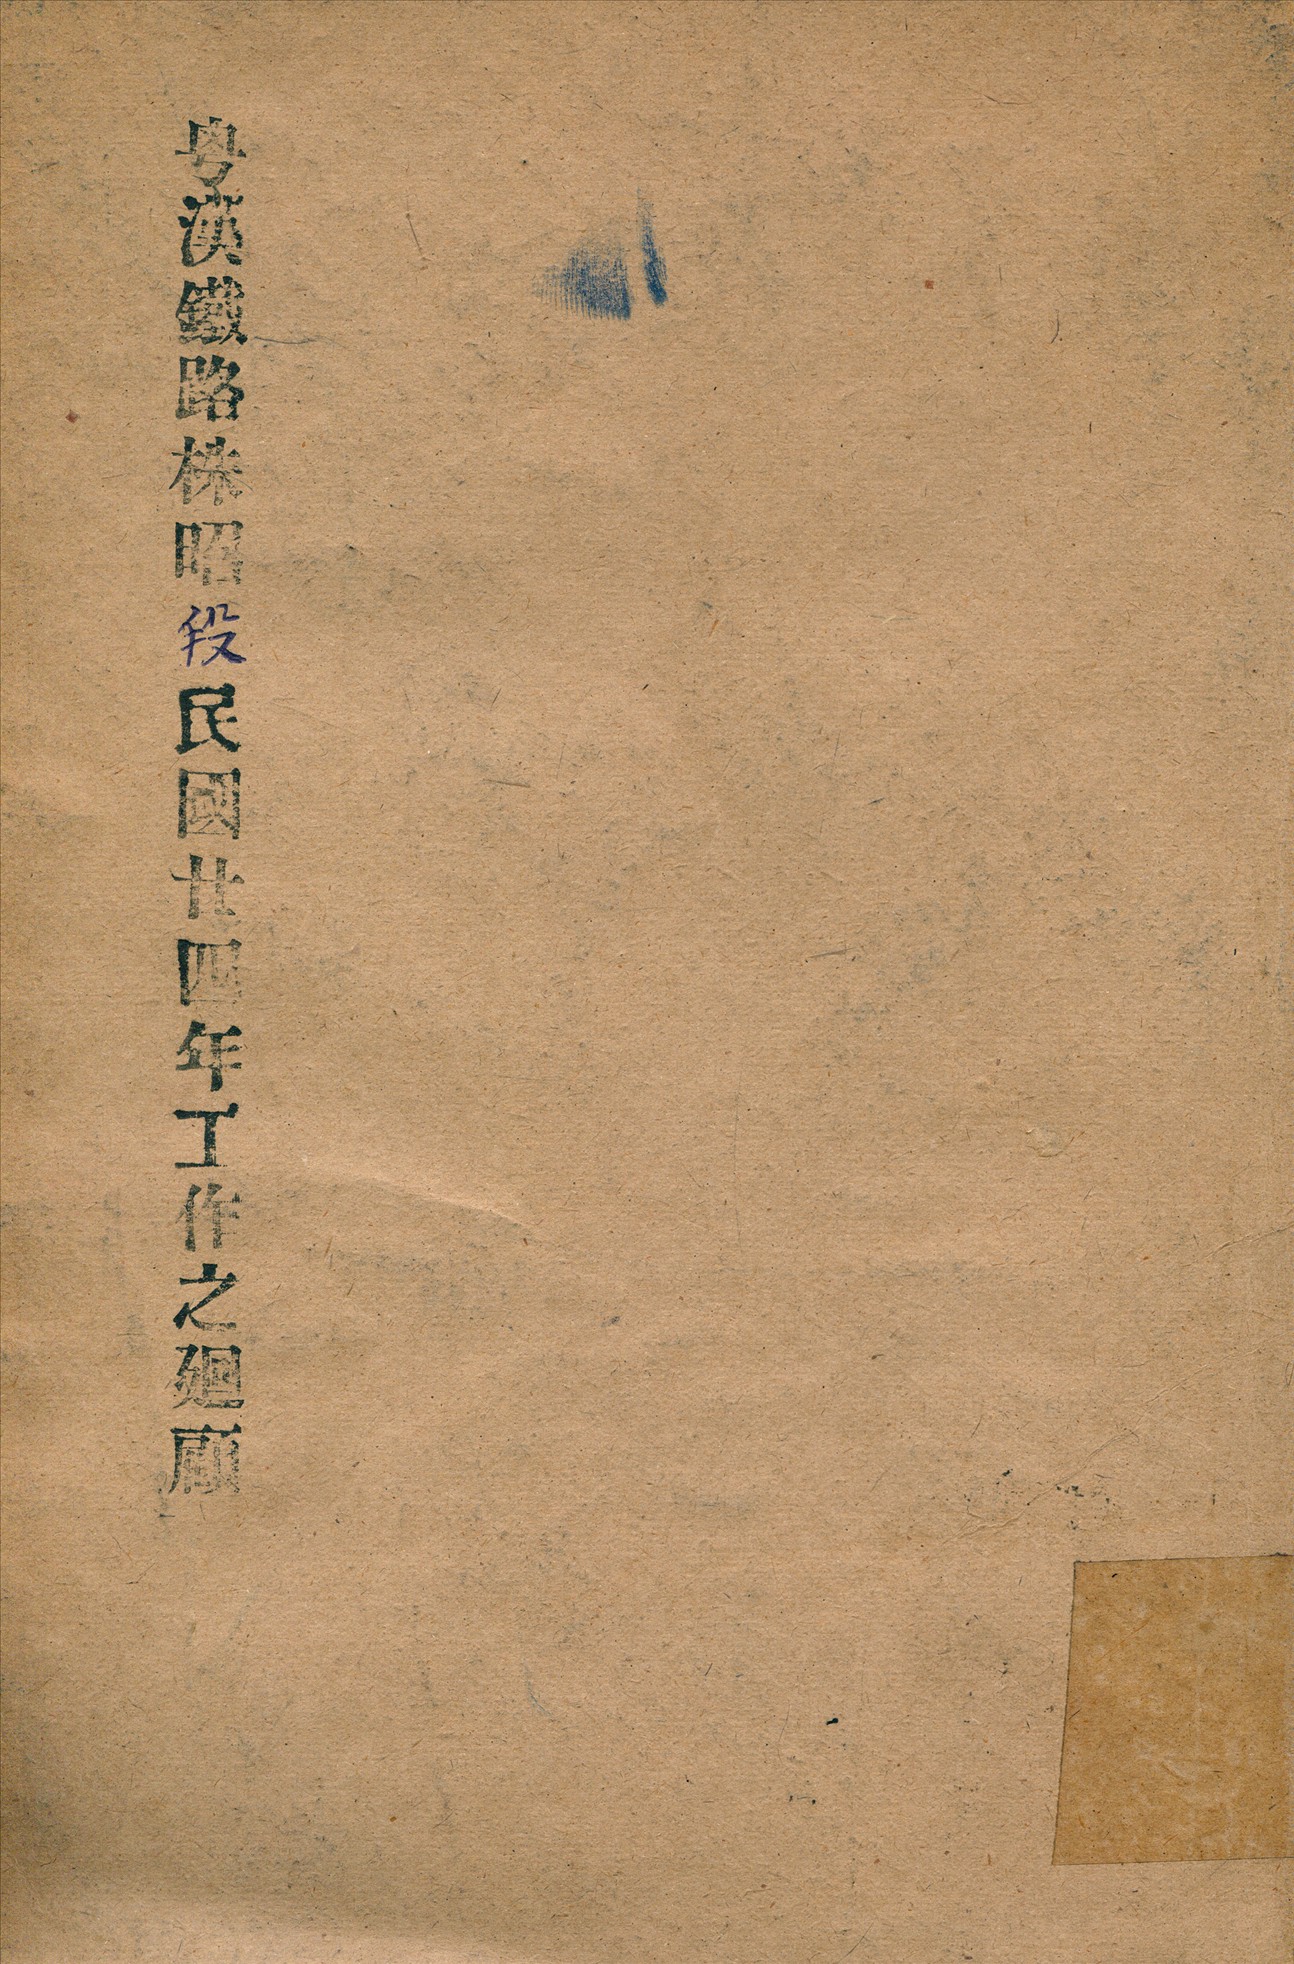 粤漢鐵路株昭段民國廿四年工作之廻顧